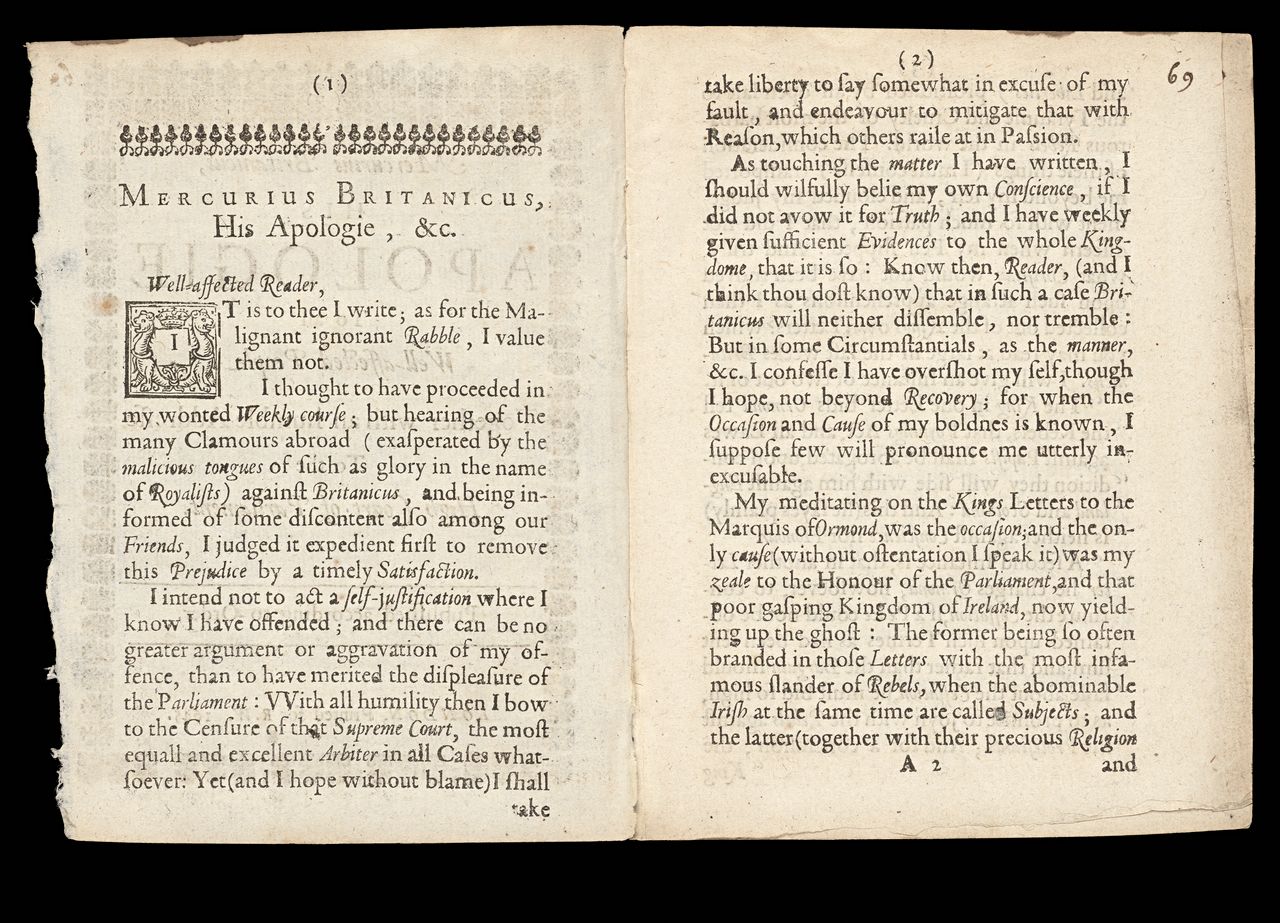 (1)
MERCURIUS BRITANICUS,
His Apologie, &c.
Well-affected Reader,
IT is to thee I write; as for the Ma-
lignant ignorant Rabble, I value
them not.
I thought to have proceeded in
my wonted Weekly courſe; but hearing of the
many Clamours abroad (exaſperated by the
malicious tongues of ſuch as glory in the name
of Royaliſts) againſt Britanicus, and being in-
formed of ſome diſcontent alſo among our
Friends, I judged it expedient firſt to remove
this Prejudice by a timely Satisfaction.
I intend not to act a ſelf-juſtification where I
know I have offended; and there can be no
greater argument or aggravation of my of-
fence, than to have merited the diſpleaſure of
the Parliament: VVith all humility then I bow
to the Cenſure of that Supreme Court, the moſt
equall and excellent Arbiter in all Caſes what-
ſoever: Yet (and I hope without blame) I ſhall
take
(2)
69
take liberty to ſay ſomewhat in excuſe of my
fault, and endeavour to mitigate that with
Reaſon, which others raile at in Paſsion.
As touching the matter I have written, I
ſhould wilfully belie my own Conſcience, if I
did not avow it for Truth; and I have weekly
given ſufficient Evidences to the whole King-
dome, that it is ſo: Know then, Reader, (and I
think thou doſt know) that in ſuch a caſe Bri-
tanicus will neither diſſemble, nor tremble:
But in ſome Circumſtantials, as the manner,
&c. I confeſſe I have overſhot my ſelf, though
I hope, not beyond Recovery; for when the
Occaſion and Cauſe of my boldnes is known, I
ſuppoſe few will pronounce me utterly in-
excuſable.
My meditating on the Kings Letters to the
Marquis of Ormond, was the occaſion; and the on-
ly cauſe (without oſtentation I ſpeak it) was my
zeale to the Honour of the Parliament, and that
poor gaſping Kingdom of Ireland, now yield-
ing up the ghoſt: The former being ſo often
branded in thoſe Letters with the moſt infa-
mous ſlander of Rebels, when the abominable
Iriſh at the ſame time are called Subjects; and
the latter (together with their precious Religion
A 2
and